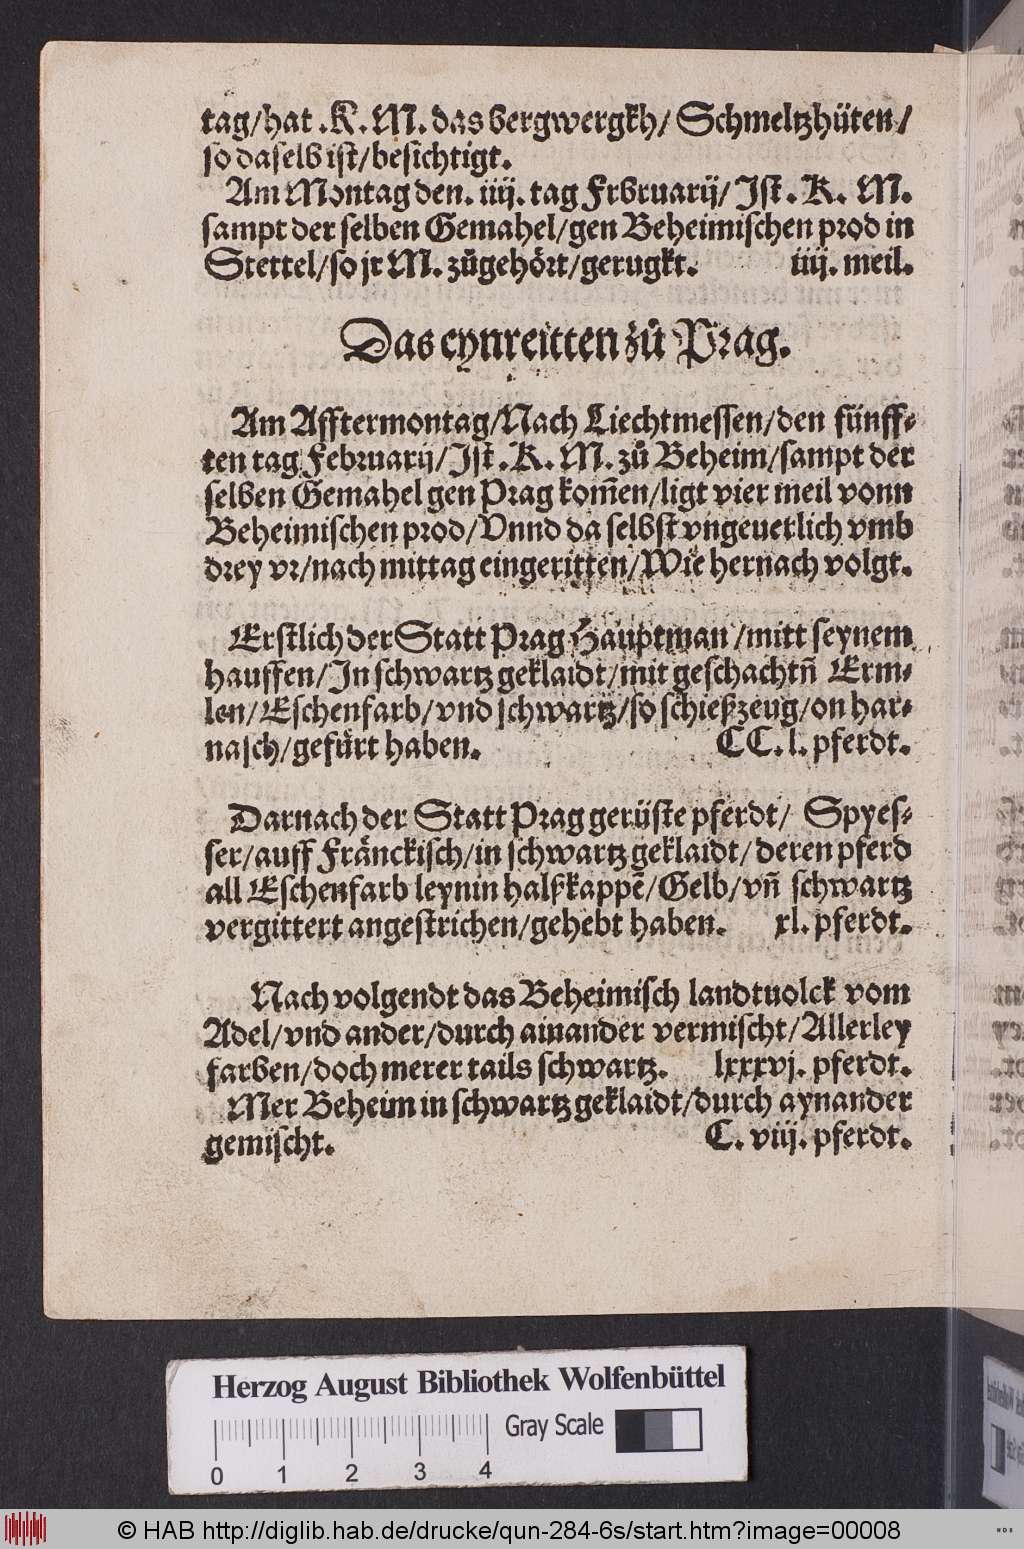 tag/hat .K. M. das bergwergkh/ Schmeltzhüten/
so daselb ist/besichtigt.
Am Montag den. iiij. tag Frbruarij/ Ist. K. M.
sampt der selben Gemahel/gen Beheimischen prod in
Stettel/so jr M. zůgehört/gerugkt. iiij. meil.
Das eynreitten zů Prag.
Am Afftermontag/Nach Liechtmessen/den fünff-
ten tag Februarij/Ist .K. M. zů Beheim/sampt der
selben Gemahel gen Prag kom̄en/ligt vier meil vonn
Beheimischen prod/Vnnd da selbst vngeuerlich vmb
drey vr/nach mittag eingeritten/Wie hernach volgt.
Erstlich der Statt Prag Hauptman/mitt seynem
hauffen/In schwartz geklaidt/mit geschachtn̄ Erm-
len/Eschenfarb/vnd schwartz/so schießzeug/on har-
nasch/gefürt haben. CC. l. pferdt.
Darnach der Statt Prag gerüste pferdt/ Spyes-
ser/auff Fränckisch/in schwartz geklaidt/deren pferd
all Eschenfarb leynin halßkappē/Gelb/vn̄ schwartz
vergittert angestrichen/gehebt haben. xl. pferdt.
Nach volgendt das Beheimisch landtuolck vom
Adel/vnd ander/durch ainander vermischt/Allerley
farben/doch merer tails schwartz. lxxxvj. pferdt.
Mer Beheim in schwartz geklaidt/durch aynander
gemischt. C. viij. pferdt.
Herzog August Bibliothek Wolfenbüttel
Gray Scale
0 1 2 3 4
© HAB http://diglib.hab.de/drucke/qun-284-6s/start.htm?image=00008